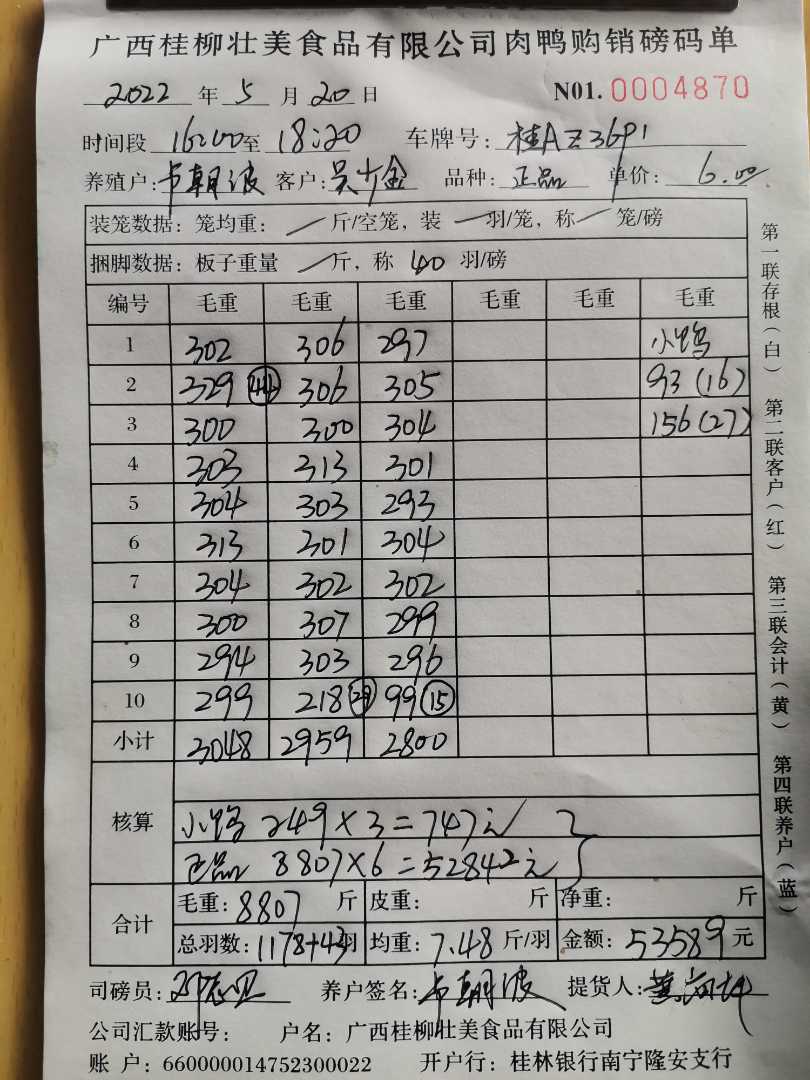 广西桂柳壮美食品有限公司肉鸭购销磅码单
2022 年 5 月 20 日 N01. 0004870
时间段 16:00 至 18:20 车牌号: 桂AZ3691
养殖户: 韦朝波 客户: 吴少金 品种: 正品 单价: 6.00
装笼数据: 笼均重: / 斤/空笼, 装 一 羽/笼, 称 / 笼/磅
捆脚数据: 板子重量 / 斤, 称 40 羽/磅
编号 毛重 毛重 毛重 毛重 毛重 毛重
1 302 306 297 小鸭
2 329 (44) 306 305 93 (16)
3 300 300 304 156 (27)
4 303 313 301
5 304 303 293
6 313 301 304
7 304 302 302
8 300 307 299
9 294 303 296
10 299 218 (29) 99 (15)
小计 3048 2959 2800
核算
小鸭 249×3=747元
正品 8807×6=52842元
合计
毛重: 8807 斤 皮重: 斤 净重: 斤
总羽数: 1178+43 羽 均重: 7.48 斤/羽 金额: 53589 元
司磅员: 养户签名: 韦朝波 提货人:
公司汇款账号: 户名: 广西桂柳壮美食品有限公司
账 户: 660000014752300022 开户行: 桂林银行南宁隆安支行
第一联存根(白) 第二联客户(红) 第三联会计(黄) 第四联养户(蓝)